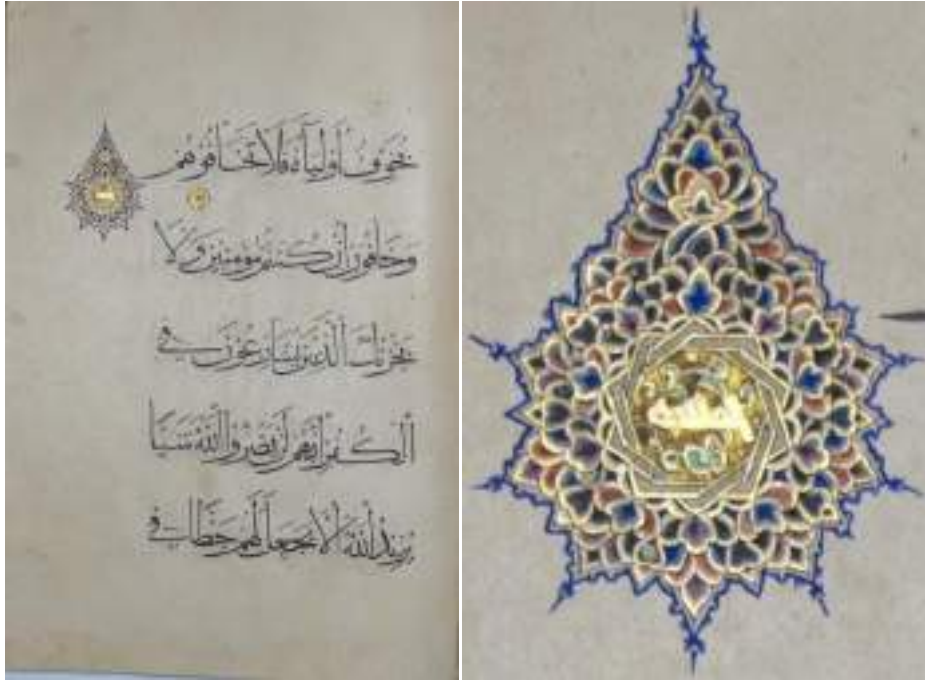 يخوف أولياءه فلا تخافوهم
وخافون إن كنتم مؤمنين ولا
يحزنك الذين يسارعون في
الكفر إنهم لن يضروا الله شيا
يريد الله ألا يجعل لهم حظا في